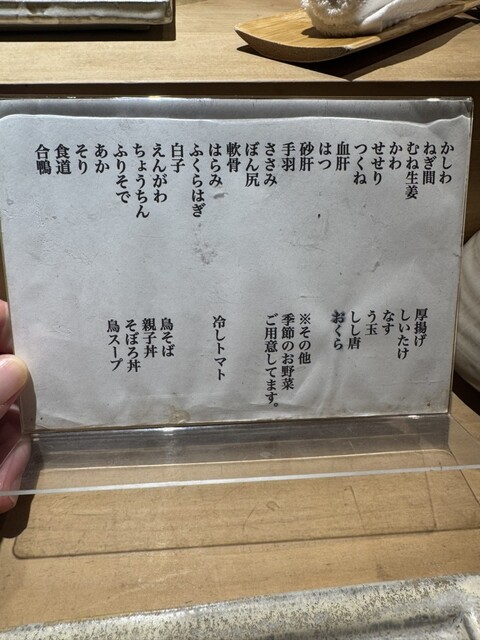 かしわ
ねぎ間
むね生姜
かわ
せせり
つくね
血肝
はつ
砂肝
手羽
ささみ
ぼん尻
軟骨
はらみ
ふくらはぎ
白子
えんがわ
ちょうちん
ふりそで
あか
そり
食道
合鴨
厚揚げ
しいたけ
なす
う玉
しし唐
おくら
※その他
季節のお野菜
ご用意してます。
冷しトマト
鳥そば
親子丼
そぼろ丼
鳥スープ